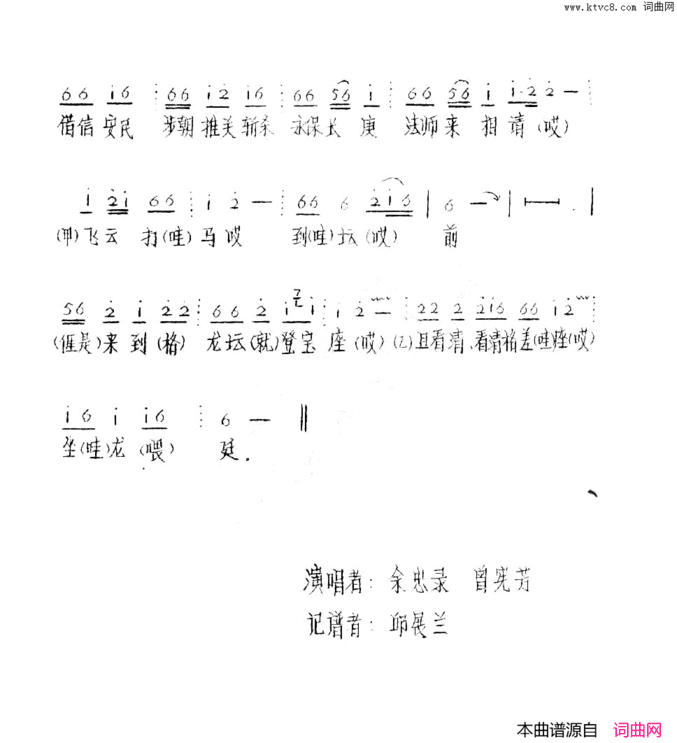 www.ktvc8.com 词曲网
66 i6 66 i2 i6 66 56 i 66 56 i i·2 2 —
借信安民 步朝推关斩杀 永保长庚 法师来相请(哎)
i 2i 66 i 2 — 66 6 2i6 | 6 — |
(甲)飞云 打(哇)马哎 到(哇)坛(哎) 前
56 2 i 22 66 2 i i i 2 — 22 2 2i6 66 i 2
(崖是)来到(格) 龙坛(就)登宝座(哎) (乙)且看清,看清格差(哇)座(哎)
i6 i i6 6 — ‖
坐(哇)龙(喂) 廷.
演唱者: 余忠录 曾宪芳
记谱者: 邱展兰
本曲谱源自 词曲网